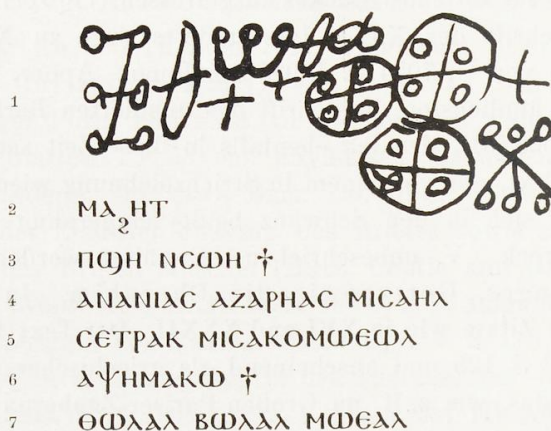 1
2 ⲙⲁϩⲏⲧ
3 ⲡϣⲏ ⲛⲥⲱⲏ †
4 ⲁⲛⲁⲛⲓⲁⲥ ⲁⲍⲁⲣⲏⲁⲥ ⲙⲓⲥⲁⲏⲗ
5 ⲥⲉⲧⲣⲁⲕ ⲙⲓⲥⲁⲕⲟⲙⲱⲉⲱⲗ
6 ⲁⲯⲏⲙⲁⲕⲱ †
7 ⲑⲱⲁⲁⲗ ⲃⲱⲁⲁⲗ ⲙⲱⲉⲁⲗ